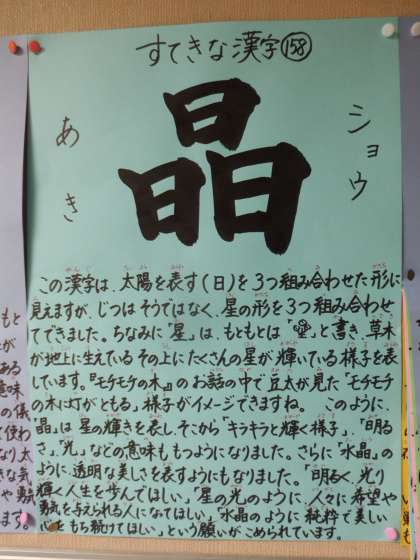 すてきな漢字158
晶
ショウ
あき
この漢字は、太陽を表す(日)を3つ組み合わせた形に
見えますが、じつはそうではなく、星の形を3つ組み合わせ
てできました。ちなみに「星」は、もともとは「曐」と書き、草木
が地上に生えているその上にたくさんの星が輝いている様子を表
しています。『モチモチの木』のお話の中で豆太が見た「モチモチ
の木に灯がともる」様子がイメージできますね。 このように、
「晶」は星の輝きを表し、そこから「キラキラと輝く様子」、「明る
さ」、「光」などの意味ももつようになりました。さらに「水晶」の
ように、透明な美しさを表すようにもなりました。「明るく、光り
輝く人生を歩んでほしい」、「星の光のように、人々に希望や
勇気を与えられる人になてほしい」、「水晶のように純粋で美しい
心をもち続けてほしい」、という願いがこめられています。